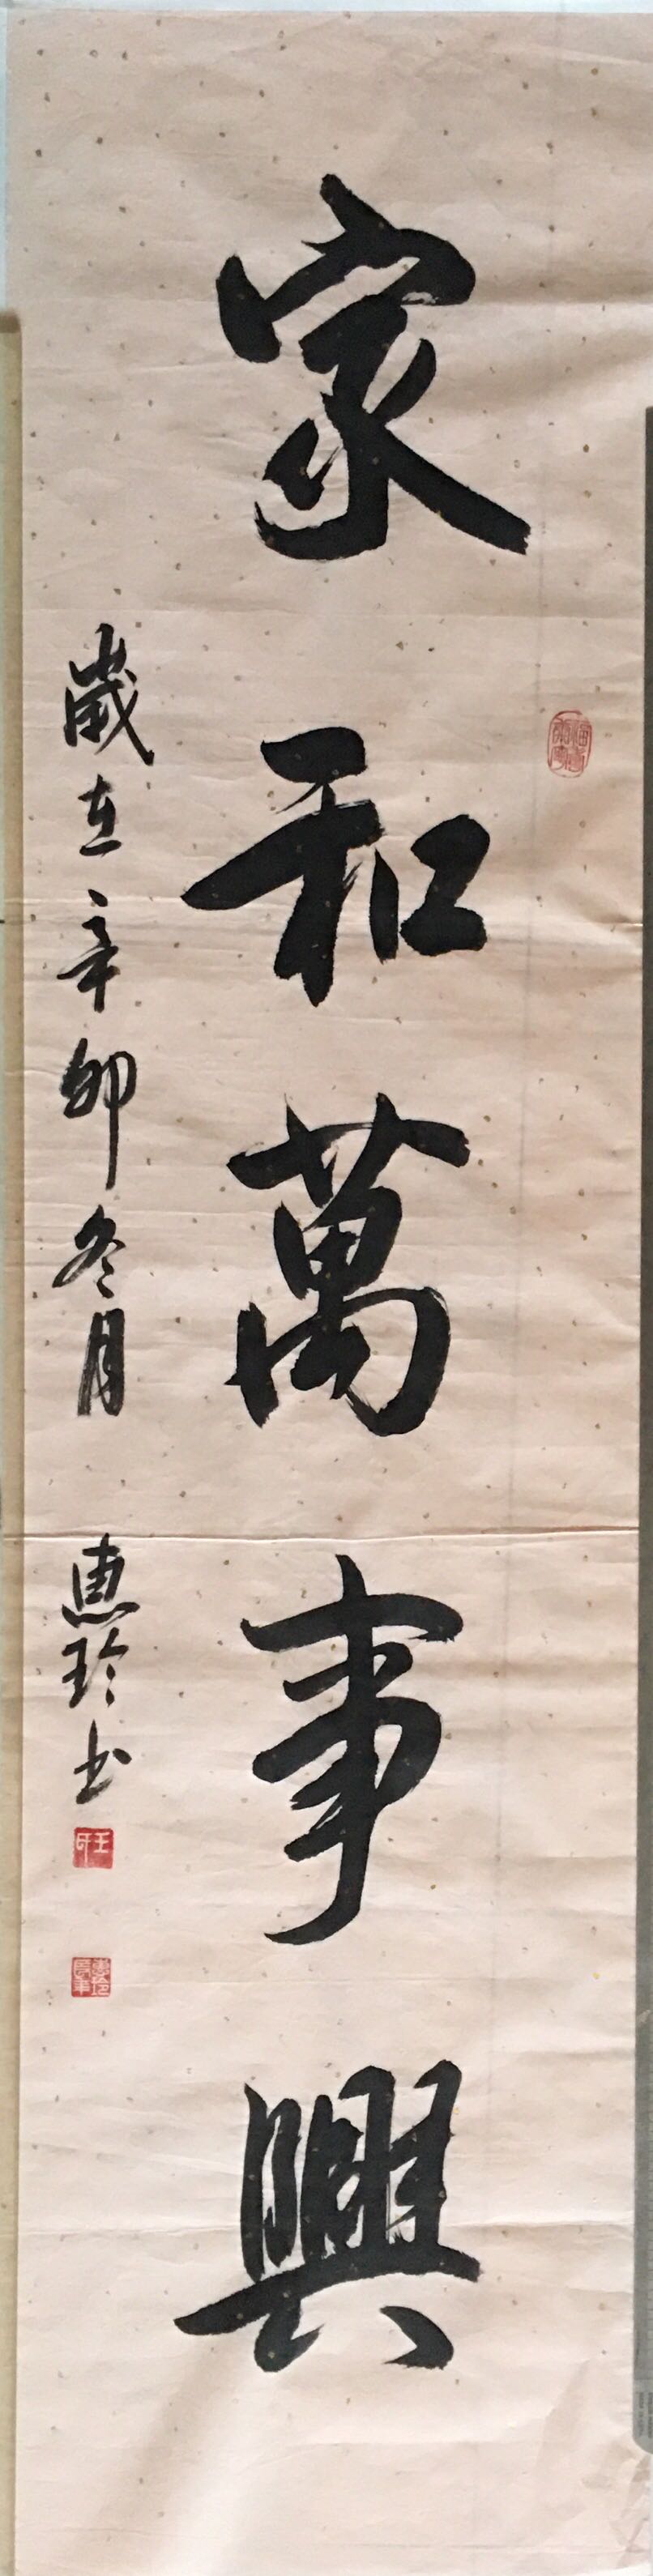 家和萬事興
歲在辛卯冬月 惠玲书
王氏